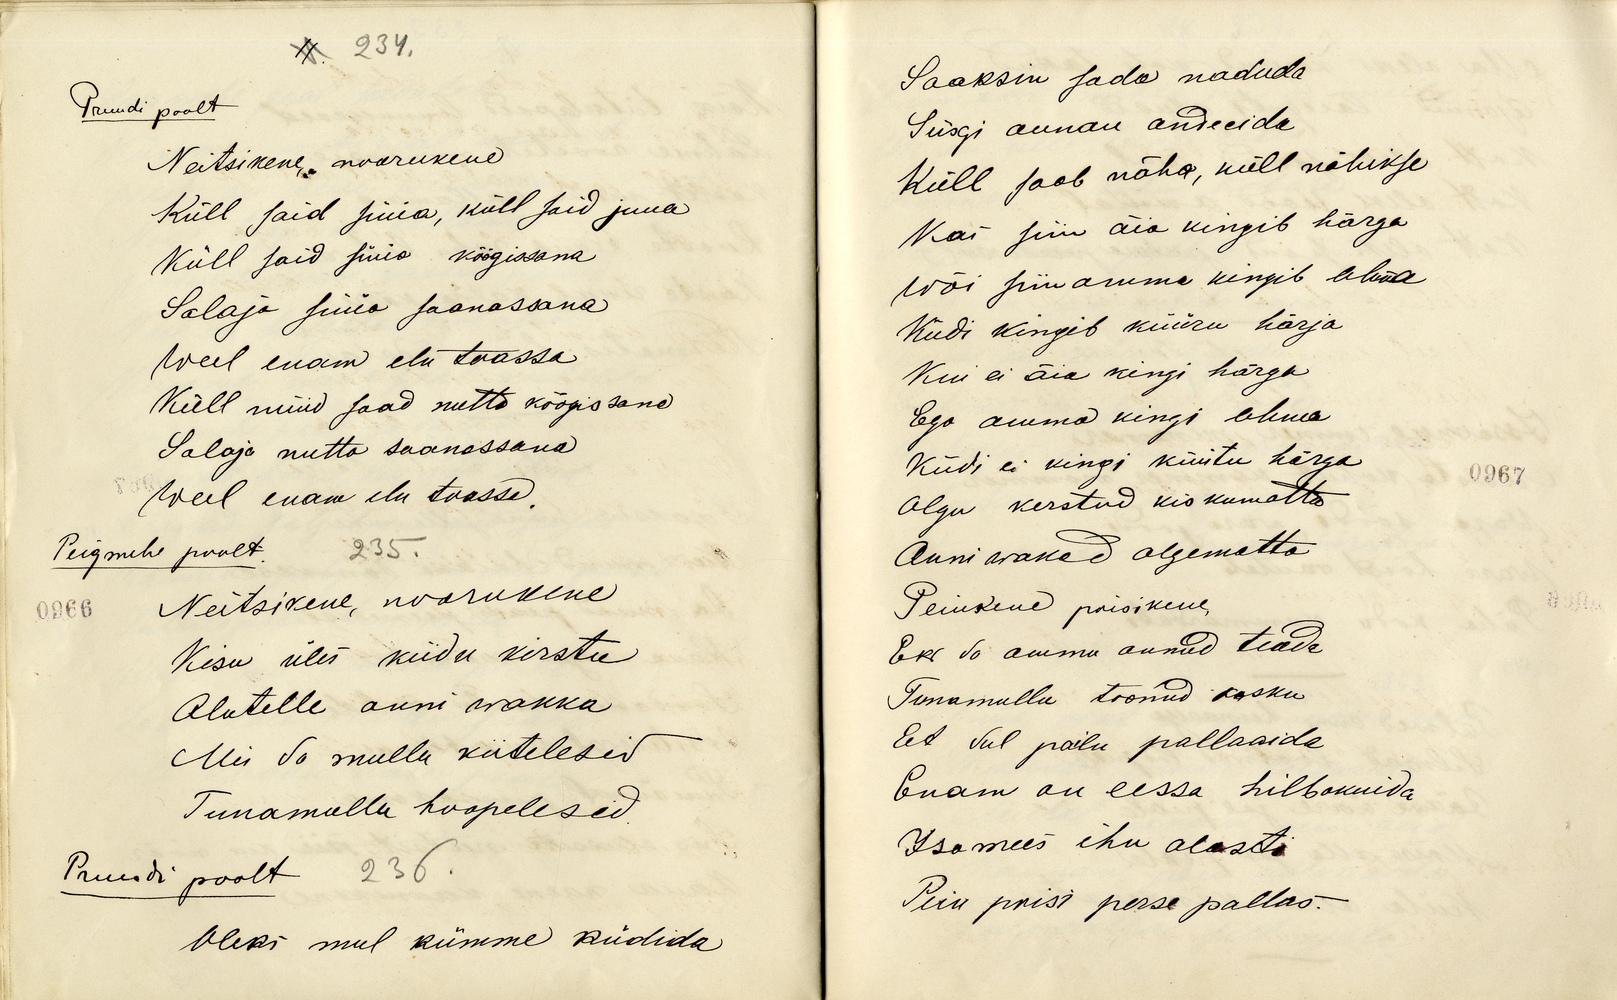 234.
Pruudi poolt
Neitsikene, noorukene
Küll said süüa, küll said juua
Küll said süüa köögissana
Salaja süüa saanassana
Weel enam elu toassa
Küll nüüd saad nutta köögissana
Salaja nutta saanassana
Weel enam elu toassa.
Peigmehe poolt. 235.
0966
Neitsikene, noorukene
Kisu üles kiidu kirstu
Alatelle anni wakka
Mis sa mullu kiitelesid
Tunamullu hoopelesid.
Pruudi poolt 236.
Oleks mul kümme küdida
Saaksin sada naduda
Siisgi annan andeeida
Küll saab näha, küll nähikse
Kas siin äia kingib härga
Wõi siin amma kingib lehma
Küdi kingib küüru härja
Kui ei äia kingi härga
Ega amma kingi lehma
Küdi ei kingi küütu härga
0967
Olgu kerstud kiskumatta
Anni wakad algematta
Peiukene poisikene,
Eks sa ammu annud teada
Tunamullu toonud sasku
Et sul palju pallaaida
Enam on eessa hilbakuida
Isamees ihu alasti
Peiu poisi perse pallas.